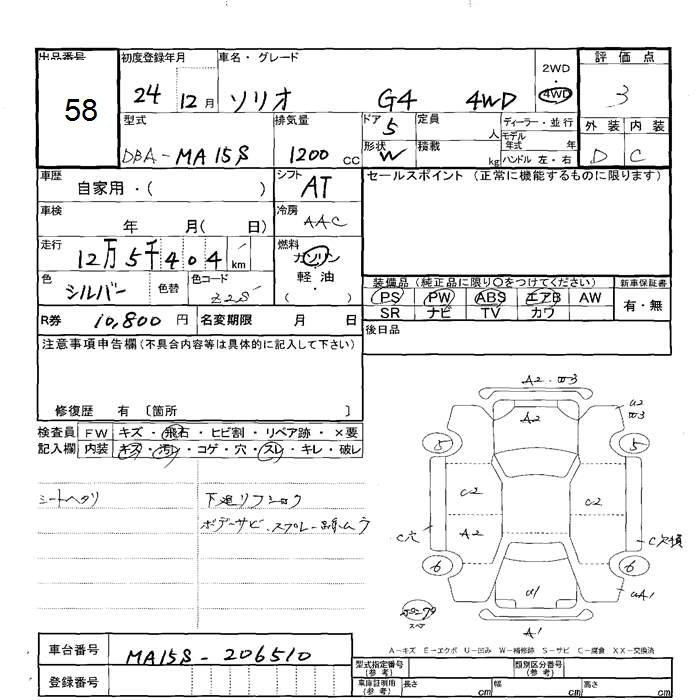 出品番号 初度登録年月 車名・グレード 2WD・4WD 評価点
58 24 12月 ソリオ G4 4WD 3
型式 排気量 ドア 5 定員 人 ディーラー・並行 外装 内装
DBA-MA15S 1200 CC 形状 W 積載 kg モデル年式 年 ハンドル 左・右 D C
車歴 自家用・( ) シフト AT セールスポイント (正常に機能するものに限ります)
車検 年 月( 日) 冷房 AAC
走行 12万5千404 km 燃料 ガソリン
色 シルバー 色替 色コード Z2S 軽・油 ( )
装備品 (純正品に限り○をつけてください) 新車保証書
PS PW ABS エアB AW 有・無
SR ナビ TV カワ
R券 10,800 円 名変期限 月 日 後日品
注意事項申告欄 (不具合内容等は具体的に記入して下さい)
修復歴 有 〔箇所 〕
検査員 FW キズ・飛石・ヒビ割・リペア跡・×要
記入欄 内装 キズ・汚レ・コゲ・穴・スレ・キレ・破レ
シートヘタリ
ボデーサビ・スプレー
A2
A2
U2
5
5
C2
C2
A2
C穴
C欠損
6
6
U1
UA1
A1
スペア
A−キズ E−エクボ U−凹み W−補修跡 S−サビ C−腐食 XX−交換済
車台番号 MA15S-206510
登録番号
型式指定番号 (参考) 類別区分番号 (参考)
車庫証明用 (参考) 長さ cm 幅 cm 高さ cm